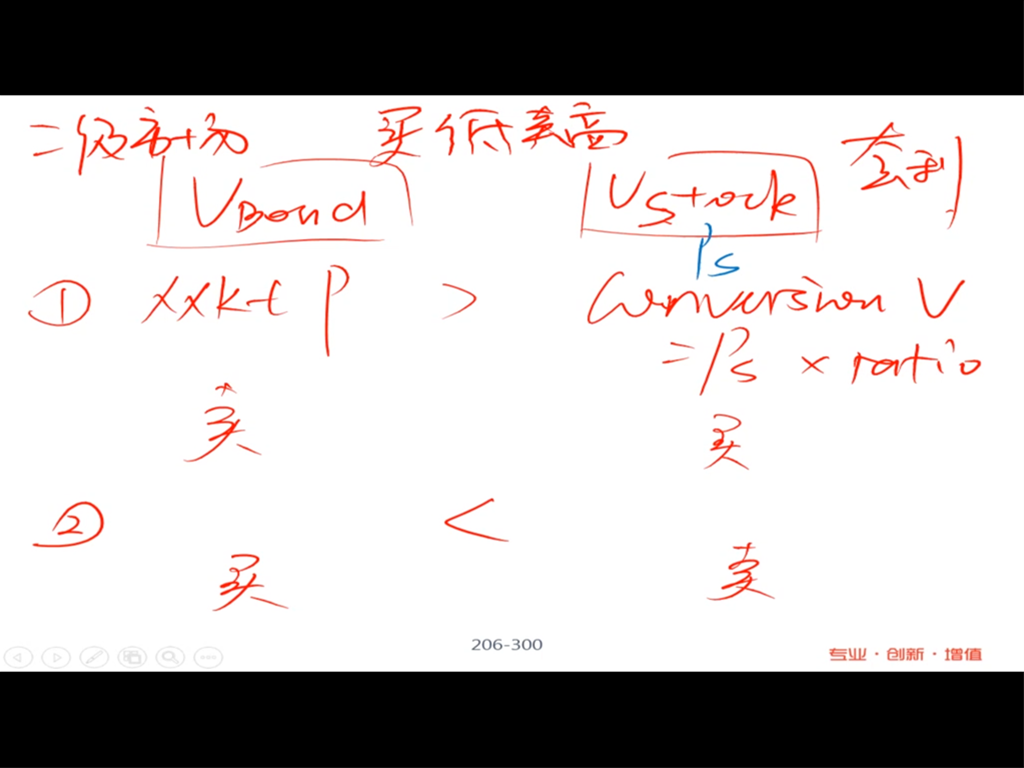 二级市场 买低卖高 套利
VBond VStock
Ps
① xxkt P > Conversion V
= Ps × ratio
卖 买
② <
买 卖
206-300
专业·创新·增值